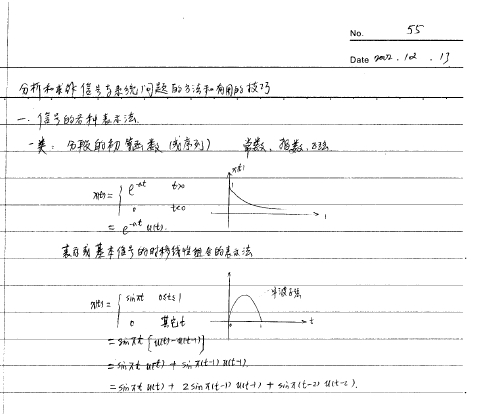 No. 55
Date 2002.12.13
分析和求解信号与系统问题的方法和有用的技巧
一. 信号的各种表示法.
一类: 分段的初等函数 (或序列) 常数、指数、正弦
x(t)
1
x(t)= { e^{-at} t>0
0 t<0
t
= e^{-at} u(t).
表示成基本信号的时移线性组合的表示法
x(t)= { sinπt 0≤t≤1
0 其它t
半波正弦
0 1 t
= sinπt [u(t)-u(t-1)]
= sinπt u(t) + sinπ(t-1) u(t-1).
= sinπt u(t) + 2sinπ(t-1) u(t-1) + sinπ(t-2) u(t-2).